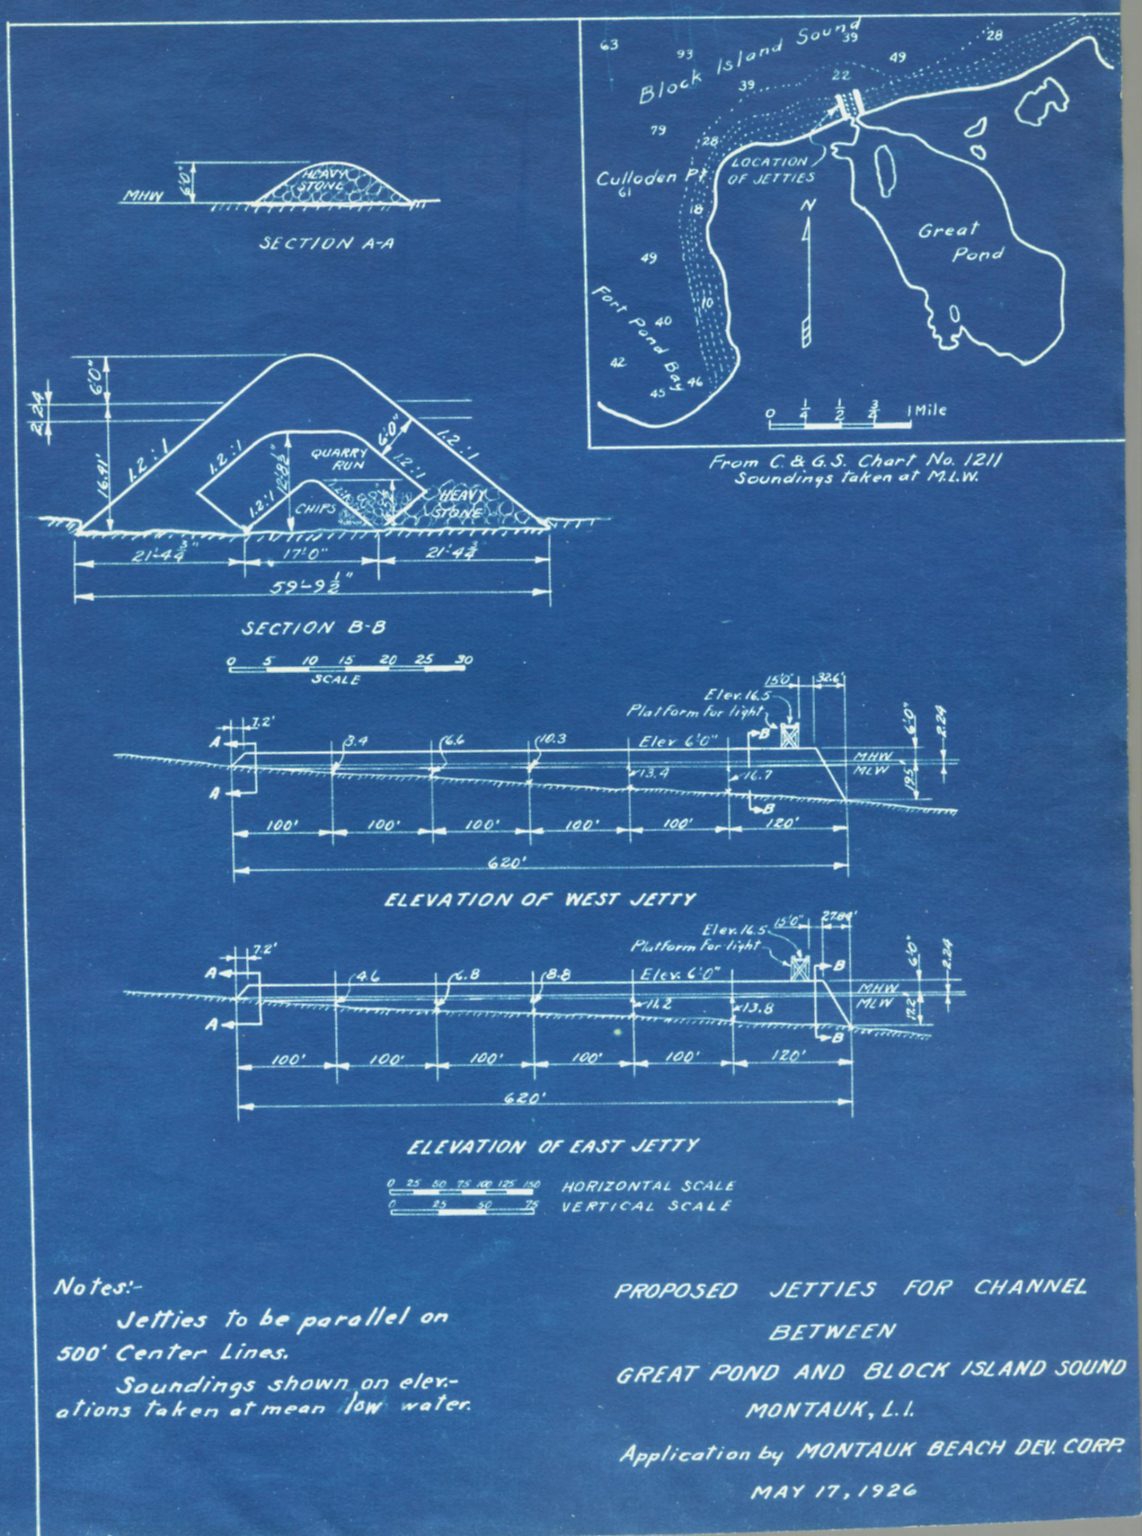 MHW
6'0"
HEAVY
STONE
SECTION A-A
63
93
Block Island Sound
39
49
28
39
22
79
28
LOCATION
OF JETTIES
Culloden Pt.
61
18
N
Great
Pond
49
10
Fort Pond Bay
40
42
45
46
0 1/4 1/2 3/4 1 Mile
From C. & G.S. Chart No. 1211
Soundings taken at M.L.W.
6'0"
2.24
16.41'
1.2:1
1.2:1
6'0"
1.2:1
QUARRY
RUN
1.2:1
1.2:1
CHIPS
HEAVY
STONE
21'-4 3/4"
17'0"
21'-4 3/4"
59'-9 1/2"
SECTION B-B
0 5 10 15 20 25 30
SCALE
15'0" 32.6'
Elev. 16.5
Platform for light
7.2'
A
3.4
6.6
10.3
Elev 6'0"
B
6'0"
2.24
MHW
MLW
19.5'
13.4
16.7
A
B
100' 100' 100' 100' 100' 120'
620'
ELEVATION OF WEST JETTY
15'0" 27.84'
Elev. 16.5
Platform for light
7.2'
A
4.6
6.8
8.8
Elev. 6'0"
B
6'0"
2.24
MHW
MLW
12.2'
11.2
13.8
A
B
100' 100' 100' 100' 100' 120'
620'
ELEVATION OF EAST JETTY
0 25 50 75 100 125 150 HORIZONTAL SCALE
0 25 50 75 VERTICAL SCALE
Notes:-
Jetties to be parallel on
500' Center Lines.
Soundings shown on elev-
ations taken at mean low water.
PROPOSED JETTIES FOR CHANNEL
BETWEEN
GREAT POND AND BLOCK ISLAND SOUND
MONTAUK, L.I.
Application by MONTAUK BEACH DEV. CORP.
MAY 17, 1926